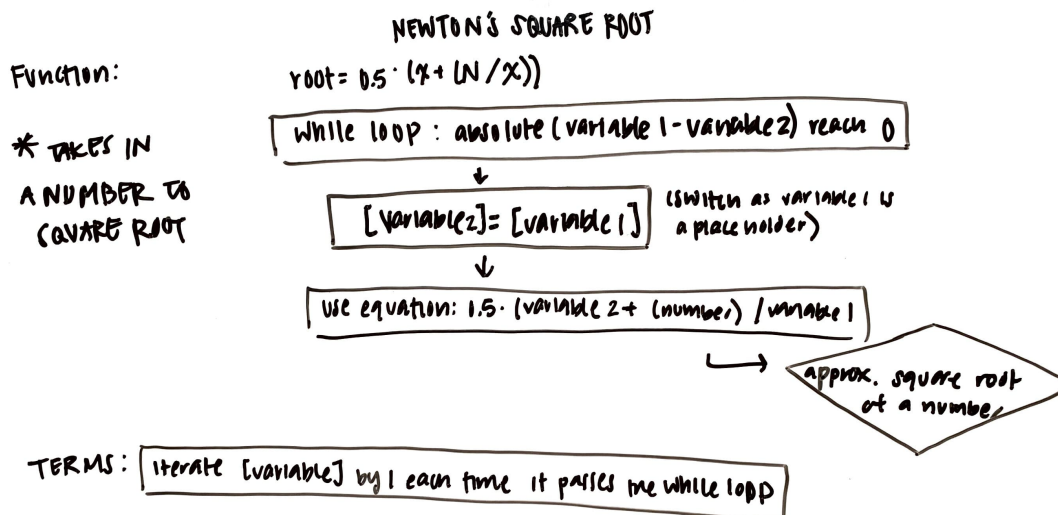 NEWTON'S SQUARE ROOT
Function:
root = 0.5 · (x + (N / x))
* TAKES IN
A NUMBER TO
SQUARE ROOT
while loop : absolute (variable 1 - variable 2) reach 0
[variable 2] = [variable 1]
(switch as variable 1 is
a place holder)
use equation: 1.5 · (variable 2 + (number) / variable 1
approx. square root
of a number
TERMS:
iterate [variable] by 1 each time it passes the while loop